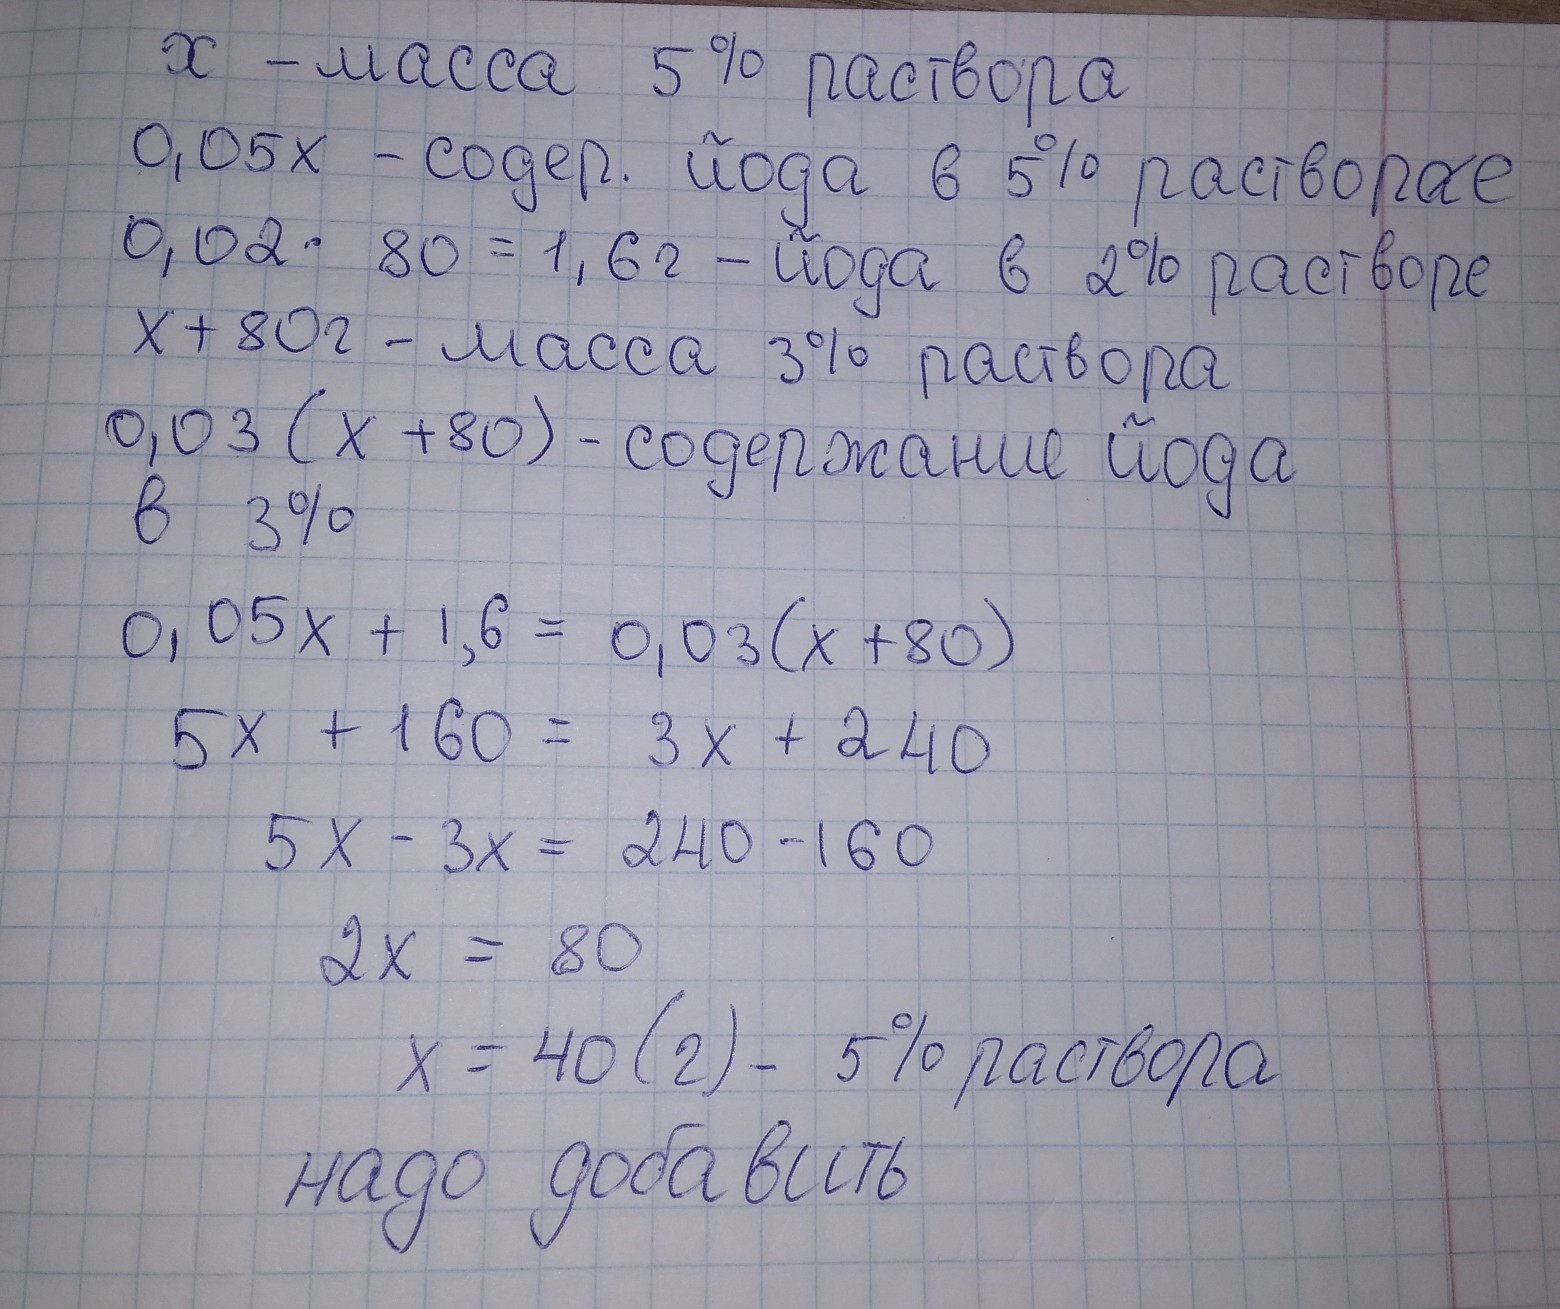 х - масса 5% раствора
0,05х - содер. йода в 5% растворае
0,02· 80 = 1,6г - йода в 2% растворе
х + 80г - масса 3% раствора
0,03 (х + 80) - содержание йода
в 3%
0,05х + 1,6 = 0,03(х + 80)
5х + 160 = 3х + 240
5х - 3х = 240 - 160
2х = 80
х = 40 (г) - 5% раствора
надо добавить